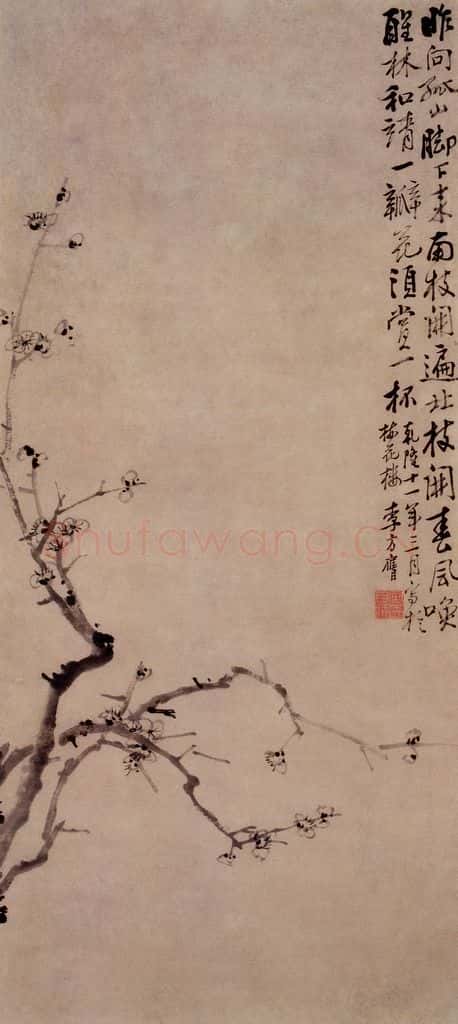 昨向孤山脚下来南枝開遍北枝開春風喚
醒林和靖一瓣花須賞一杯
乾隆十一年三月寫於
梅花樓 李方膺
shufawang.c